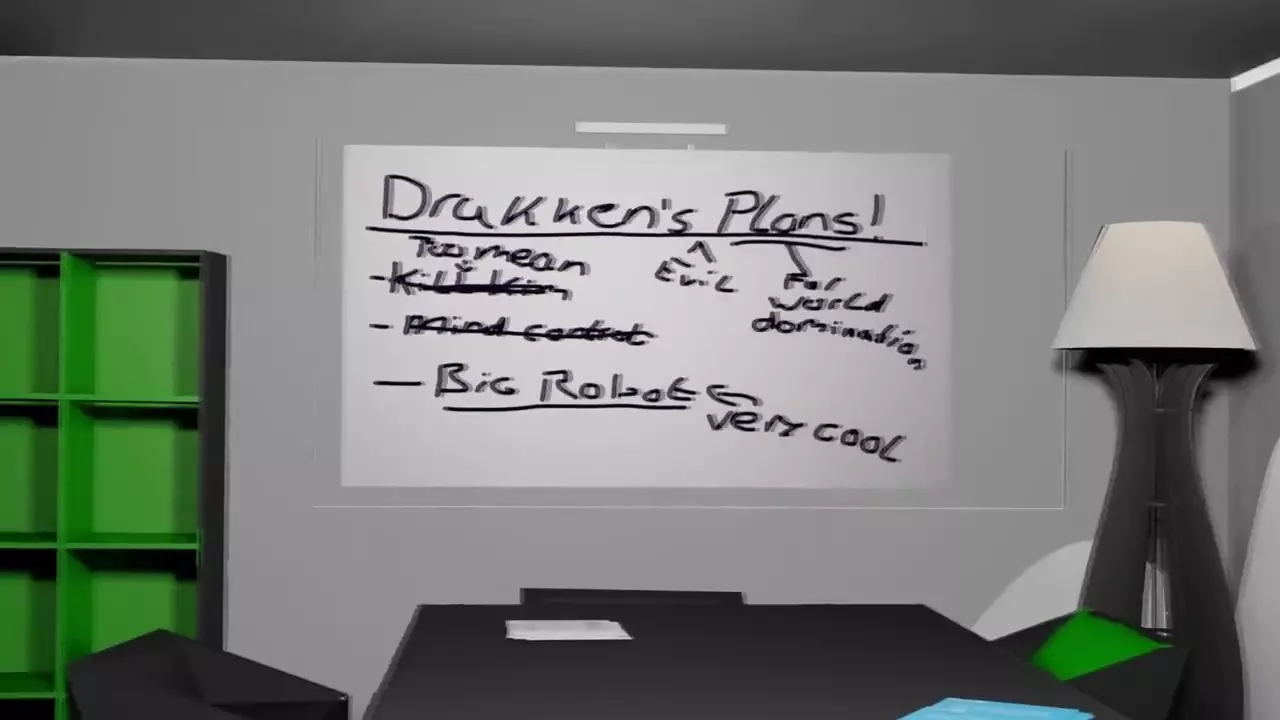 Drakken's Plans!
Evil
For
world
domination
Too mean
- Kill Kim
- Mind control
- Big Robot
very cool